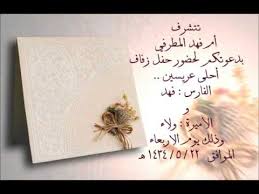 تتشرف
أم فهد المطرفي
بدعوتكم لحضور حفل زفاف
أحلى عريسين ..
الفارس : فهد
و
الأميرة : ولاء
وذلك يوم الاربعاء
الموافق ٢٢ / ٥ / ١٤٣٤ هـ